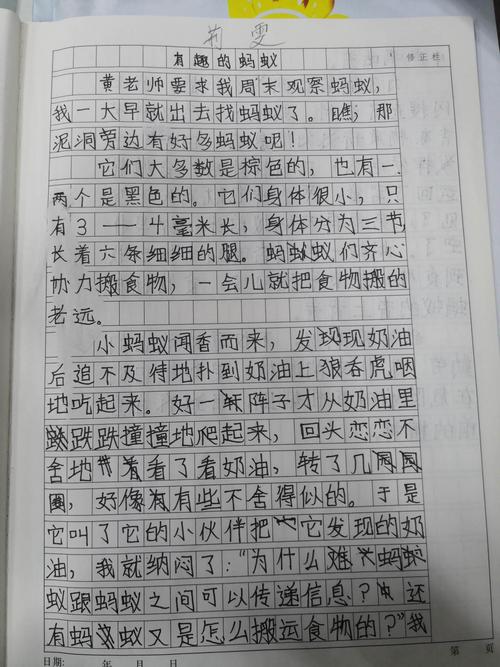 有趣的蚂蚁
修正栏
黄老师要求我周末观察蚂蚁,
我一大早就出去找蚂蚁了。瞧,那
泥洞旁边有好多蚂蚁呢!
它们大多数是棕色的,也有一
两个是黑色的。它们身体很小,只
有3——4毫米长,身体分为三节,
长着六条细细的腿。蚂蚁们齐心
协力搬食物,一会儿就把食物搬的
老远。
小蚂蚁闻香而来,发现现奶油
后追不及待地扑到奶油上狼吞虎咽
地吃起来。好一阵子才从奶油里
跌跌撞撞地爬起来,回头恋恋不
舍地看了看奶油,转了几圆
圈,好像有有些不舍得似的。于是
它叫了它的小伙伴把它发现的奶
油,我就纳闷了:“为什么难蚂
蚁跟蚂蚁之间可以传递信息?还
有蚂蚁又是怎么搬运食物的?”我
日期: 年 月 日
第 页